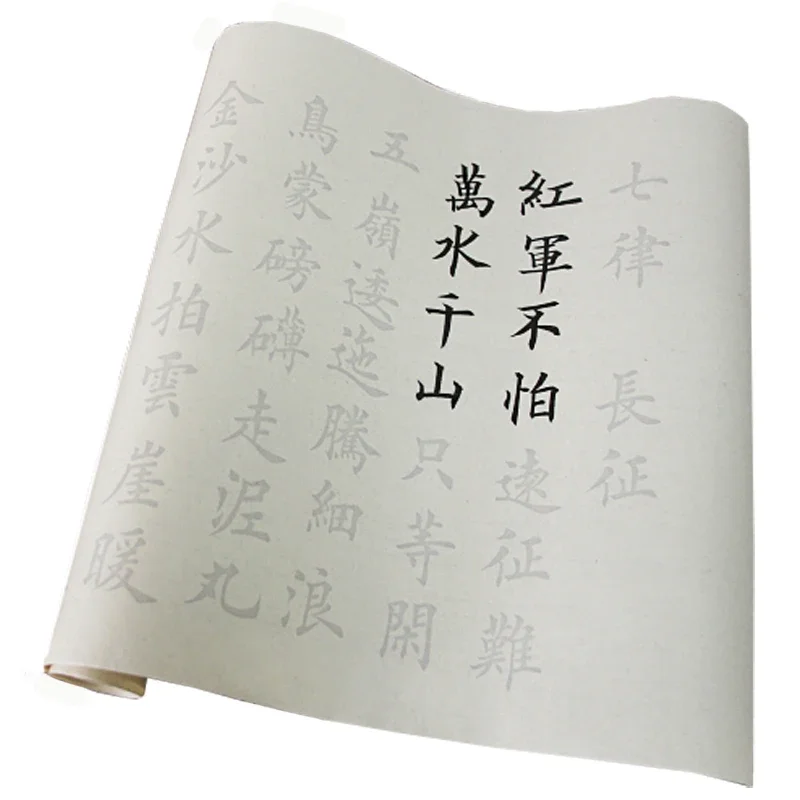 七律 長征
紅軍不怕遠征難
萬水千山只等閑
五嶺逶迤騰細浪
烏蒙磅礴走泥丸
金沙水拍雲崖暖